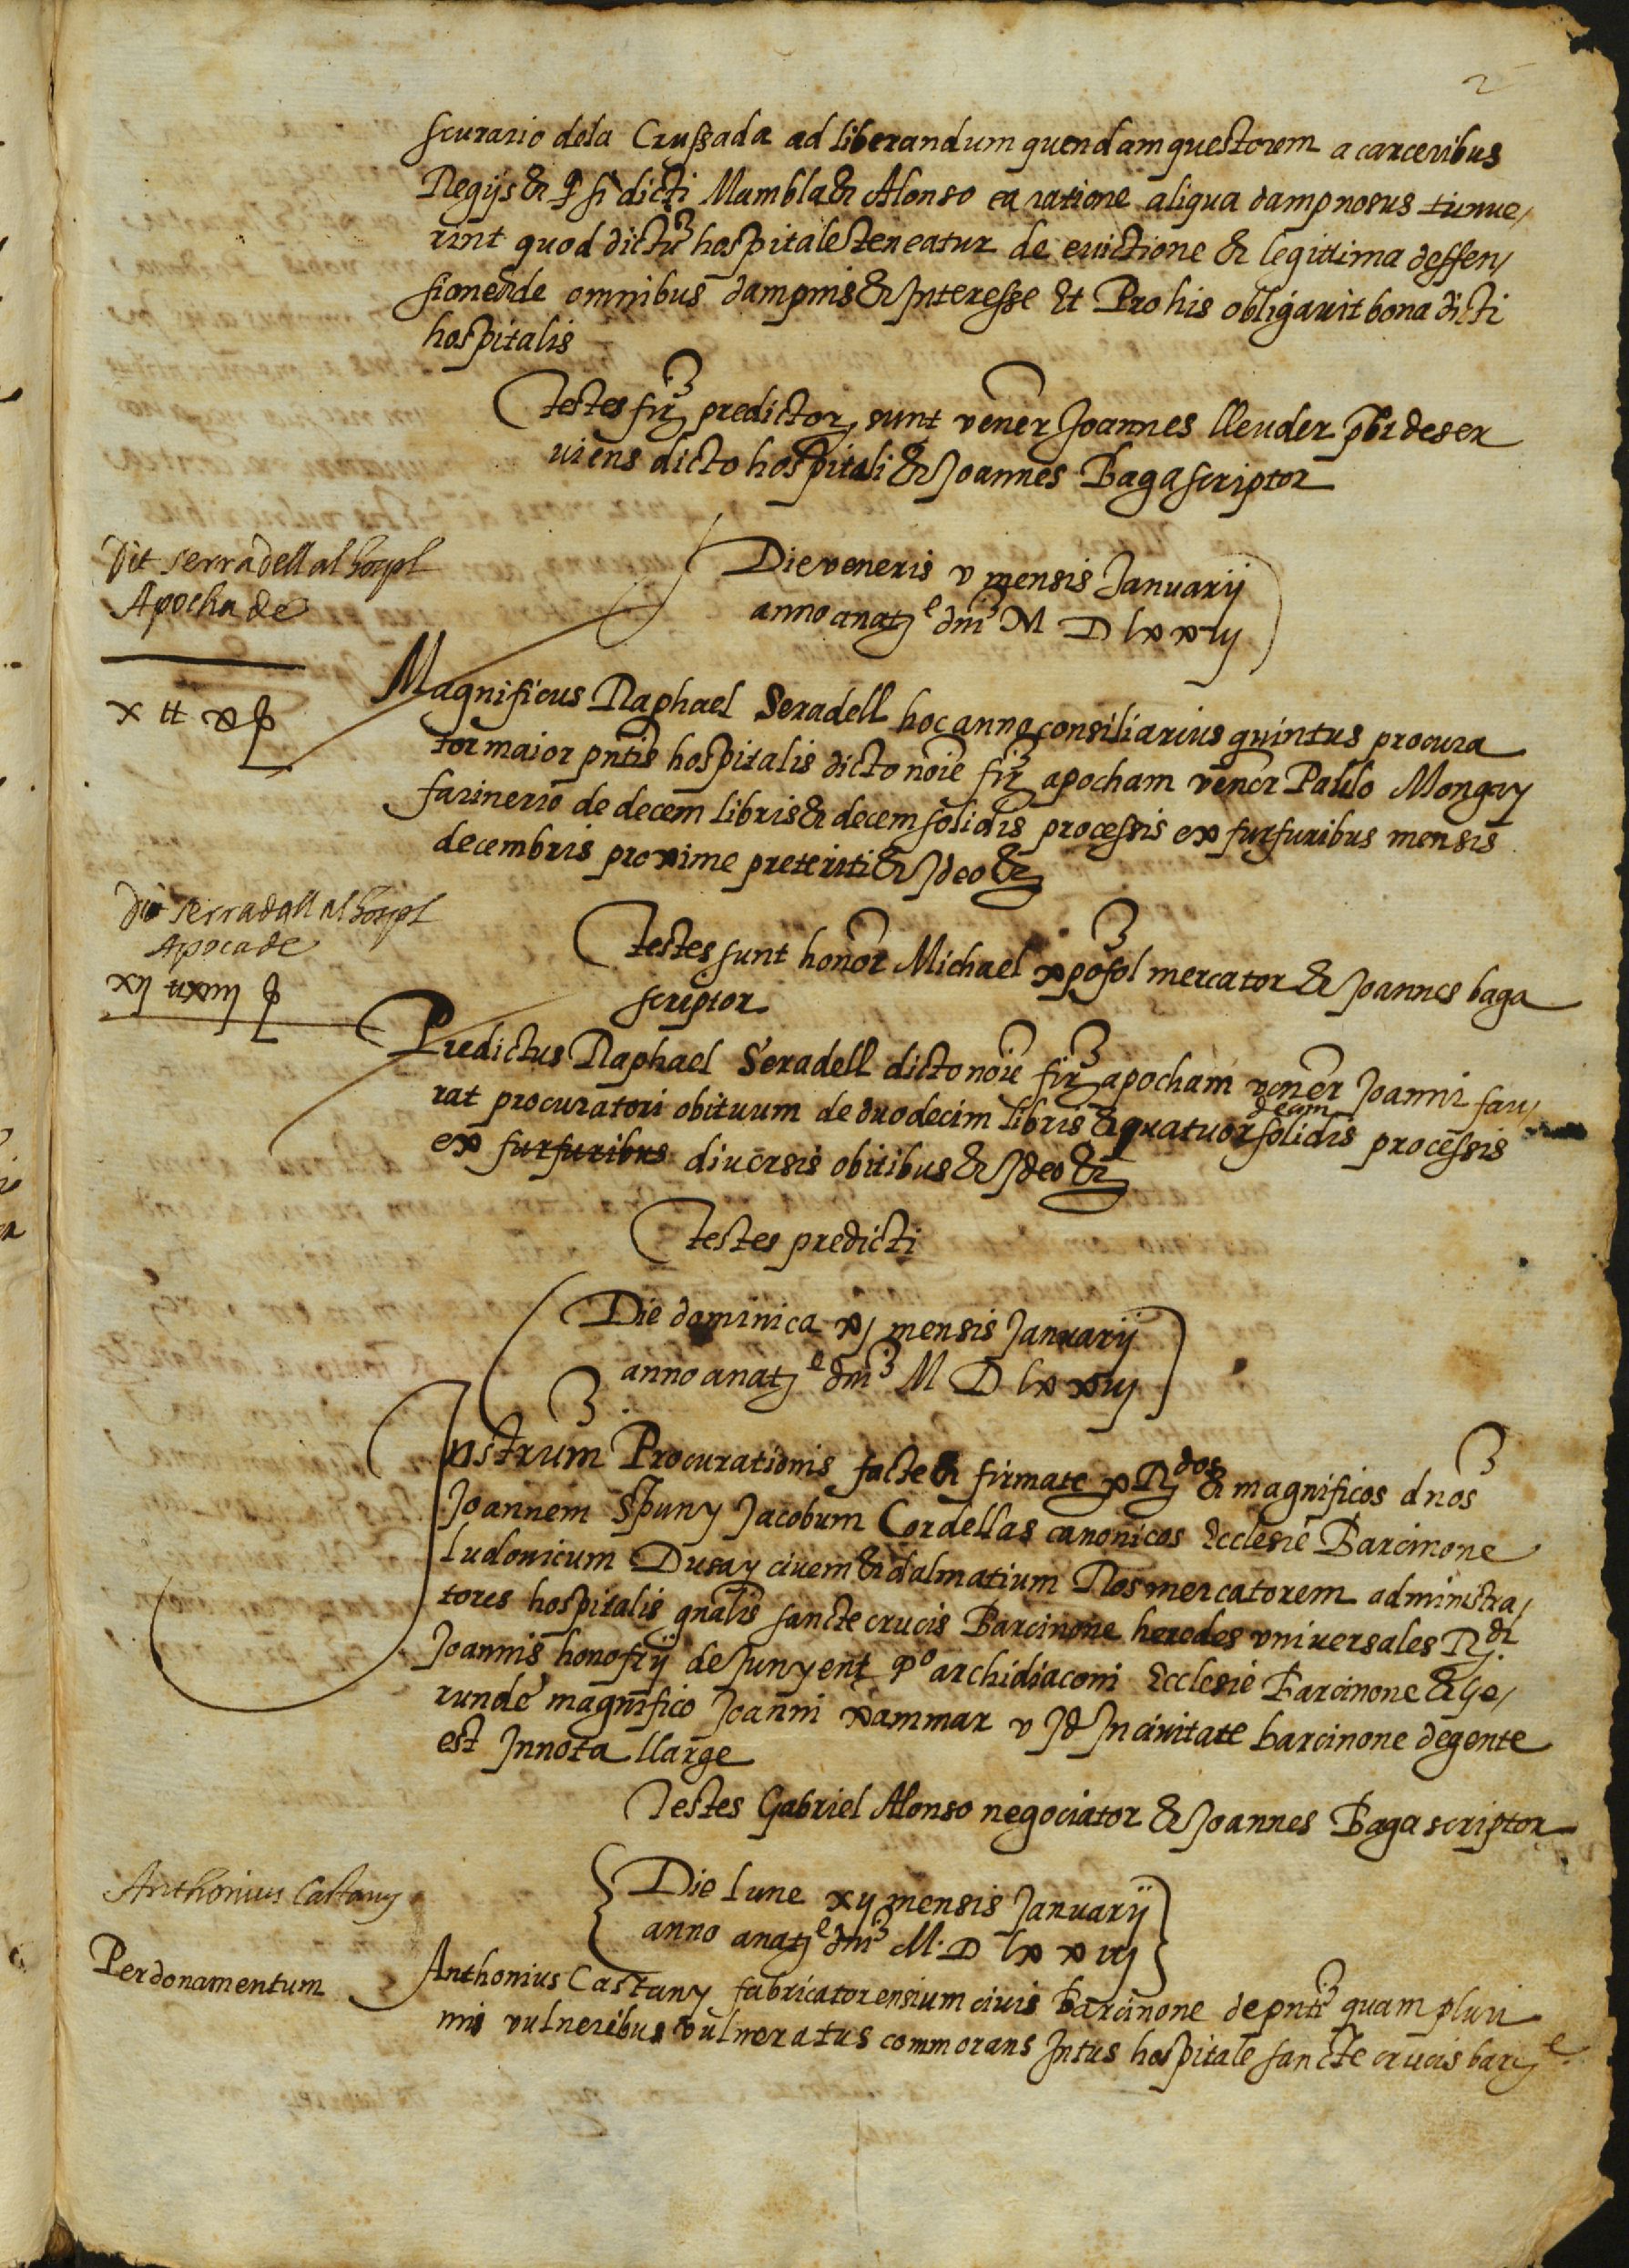 2
scurario dela Crussada ad liberandum quendam questorem a carceribus
Regijs & q si dicti Mambla & Alonso ea ratione aliqua dampnosus
rint quod dictũ hospitale teneatur de euictione & legittima deffen/
sione & de omnibus dampnis & Interesse Et Pro his obligauit bona dicti
hospitalis
Testes fir predictor sunt vener Joannes lleuder pbr deser
uiens dicto hospitali & Joannes Baga scriptor
Die veneris v mensis Januarij
anno a natẽ dñi M D lxxvij
Dit serradell al hospl
Apocha de
x ℔ x ß
Magnificus Raphael Seradell hoc anno consiliarius quintus procura
tor maior pntis hospitalis dicto noie fir apocham vener Paulo Mongay
farinerio de decem libris & decem solidis processis ex furfuribus mensis
decembris proxime preteriti & Ideo &
Testes sunt honor Michael xpofol mercator & Joannes baga
scriptor
Dit serradell al hospl
Apoca de
xij ℔ xiiij ß
Predictus Raphael Seradell dicto noie fir apocham vener Joanni fau/
rat procuratori obituum de duodecim libris & quatuor decim solidis processis
ex furfuribus diuersis obitibus & Ideo &
Testes predicti
Die dominica xj mensis Januarij
anno a natẽ dñi M D lxxvij
Instrum Procurationis facte & firmate p Rdos & magnificos dnos
Joannem Spuny Jacobum Cordellas canonicos Ecclesie Barcinone
Ludouicum Dusay ciuem & dalmatium Ros mercatorem administra/
tores hospitalis gnalis sancte crucis Barcinone heredes vniuersales Rdi
Joannis honofrij de Junyent qo archidiaconi Ecclesie Barcinone & Ge/
runde magnifico Joanni xammar v Jd In ciuitate barcinone degente
est In nota llarge
Testes Gabriel Alonso negociator & Joannes Baga scriptor
Die lune xij mensis Januarij
anno a natẽ dñi M. D lxxvij
Anthonius Castany
Perdonamentum
Anthonius Castany fabricator ensium ciuis Barcinone de pnti quam pluri
mis vulneribus vulneratus commorans Intus hospitale sancte crucis barẽ